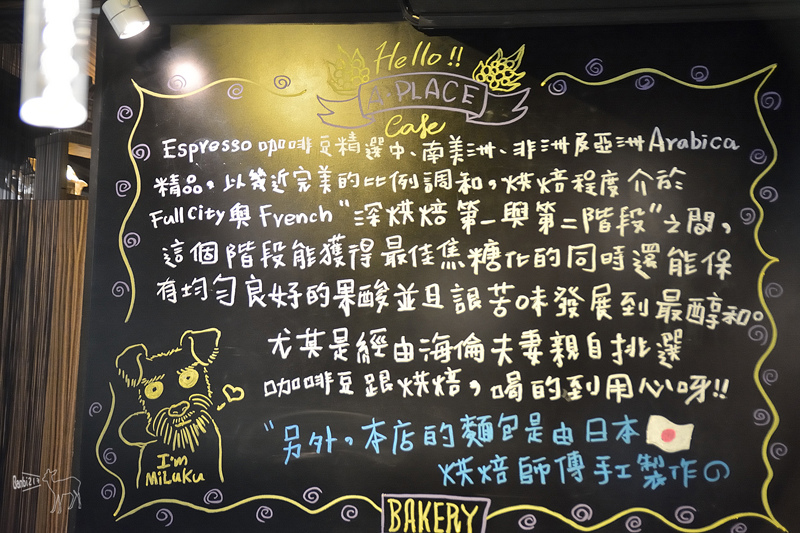 Hello!!
A PLACE
Cafe
Espresso咖啡豆精選中、南美洲、非洲及亞洲Arabica
精品，以幾近完美的比例調和，烘焙程度介於
Full City與French“深烘焙第一與第二階段”之間，
這個階段能獲得最佳焦糖化的同時還能保
有均勻良好的果酸並且讓苦味發展到最醇和。
尤其是經由海倫夫妻親自挑選
咖啡豆跟烘焙，喝的到用心呀!!
“另外，本店的麵包是由日本
烘焙師傅手工製作の
I'm
MiLuKu
BAKERY